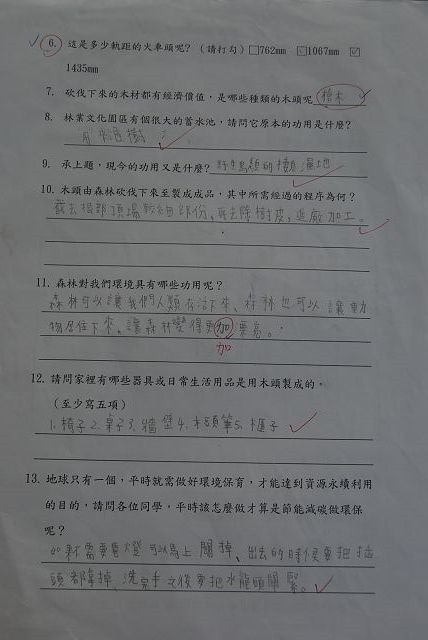 6. 這是多少軌距的火車頭呢?(請打勾)□762mm □1067mm ☑
1435mm
7. 砍伐下來的木材都有經濟價值,是哪些種類的木頭呢 檜木
8. 林業文化園區有個很大的蓄水池,請問它原本的功用是什麼?
9. 承上題,現今的功用又是什麼? 濕地
10. 木頭由森林砍伐下來至製成成品,其中所需經過的程序為何?
去除樹皮、進廠加工。
11. 森林對我們環境具有哪些功用呢?
森林可以讓我們人類存活下來、森林也可以讓動
物居住下來。讓森林變得更加漂亮。
加
12. 請問家裡有哪些器具或日常生活用品是用木頭製成的。
(至少寫五項)
1.椅子2.桌子3.牆壁4.木頭筆5.櫃子
13. 地球只有一個,平時就需做好環境保育,才能達到資源永續利用
的目的,請問各位同學,平時該怎麼做才算是節能減碳做環保
呢?
不需要電燈可以馬上關掉、出去的時候要把插
頭都拿掉、洗完手之後要把水龍頭關緊。